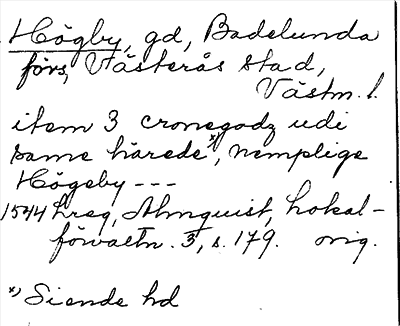 Högby, gd, Badelunda
förs, Västerås stad,
Västm. l.
item 3 cronegodz udi
same härede *), nemplige
Högeby ---
1544 hreg, Almquist, Lokal-
förvaltn. 3, s. 179. orig.
*) Siende hd